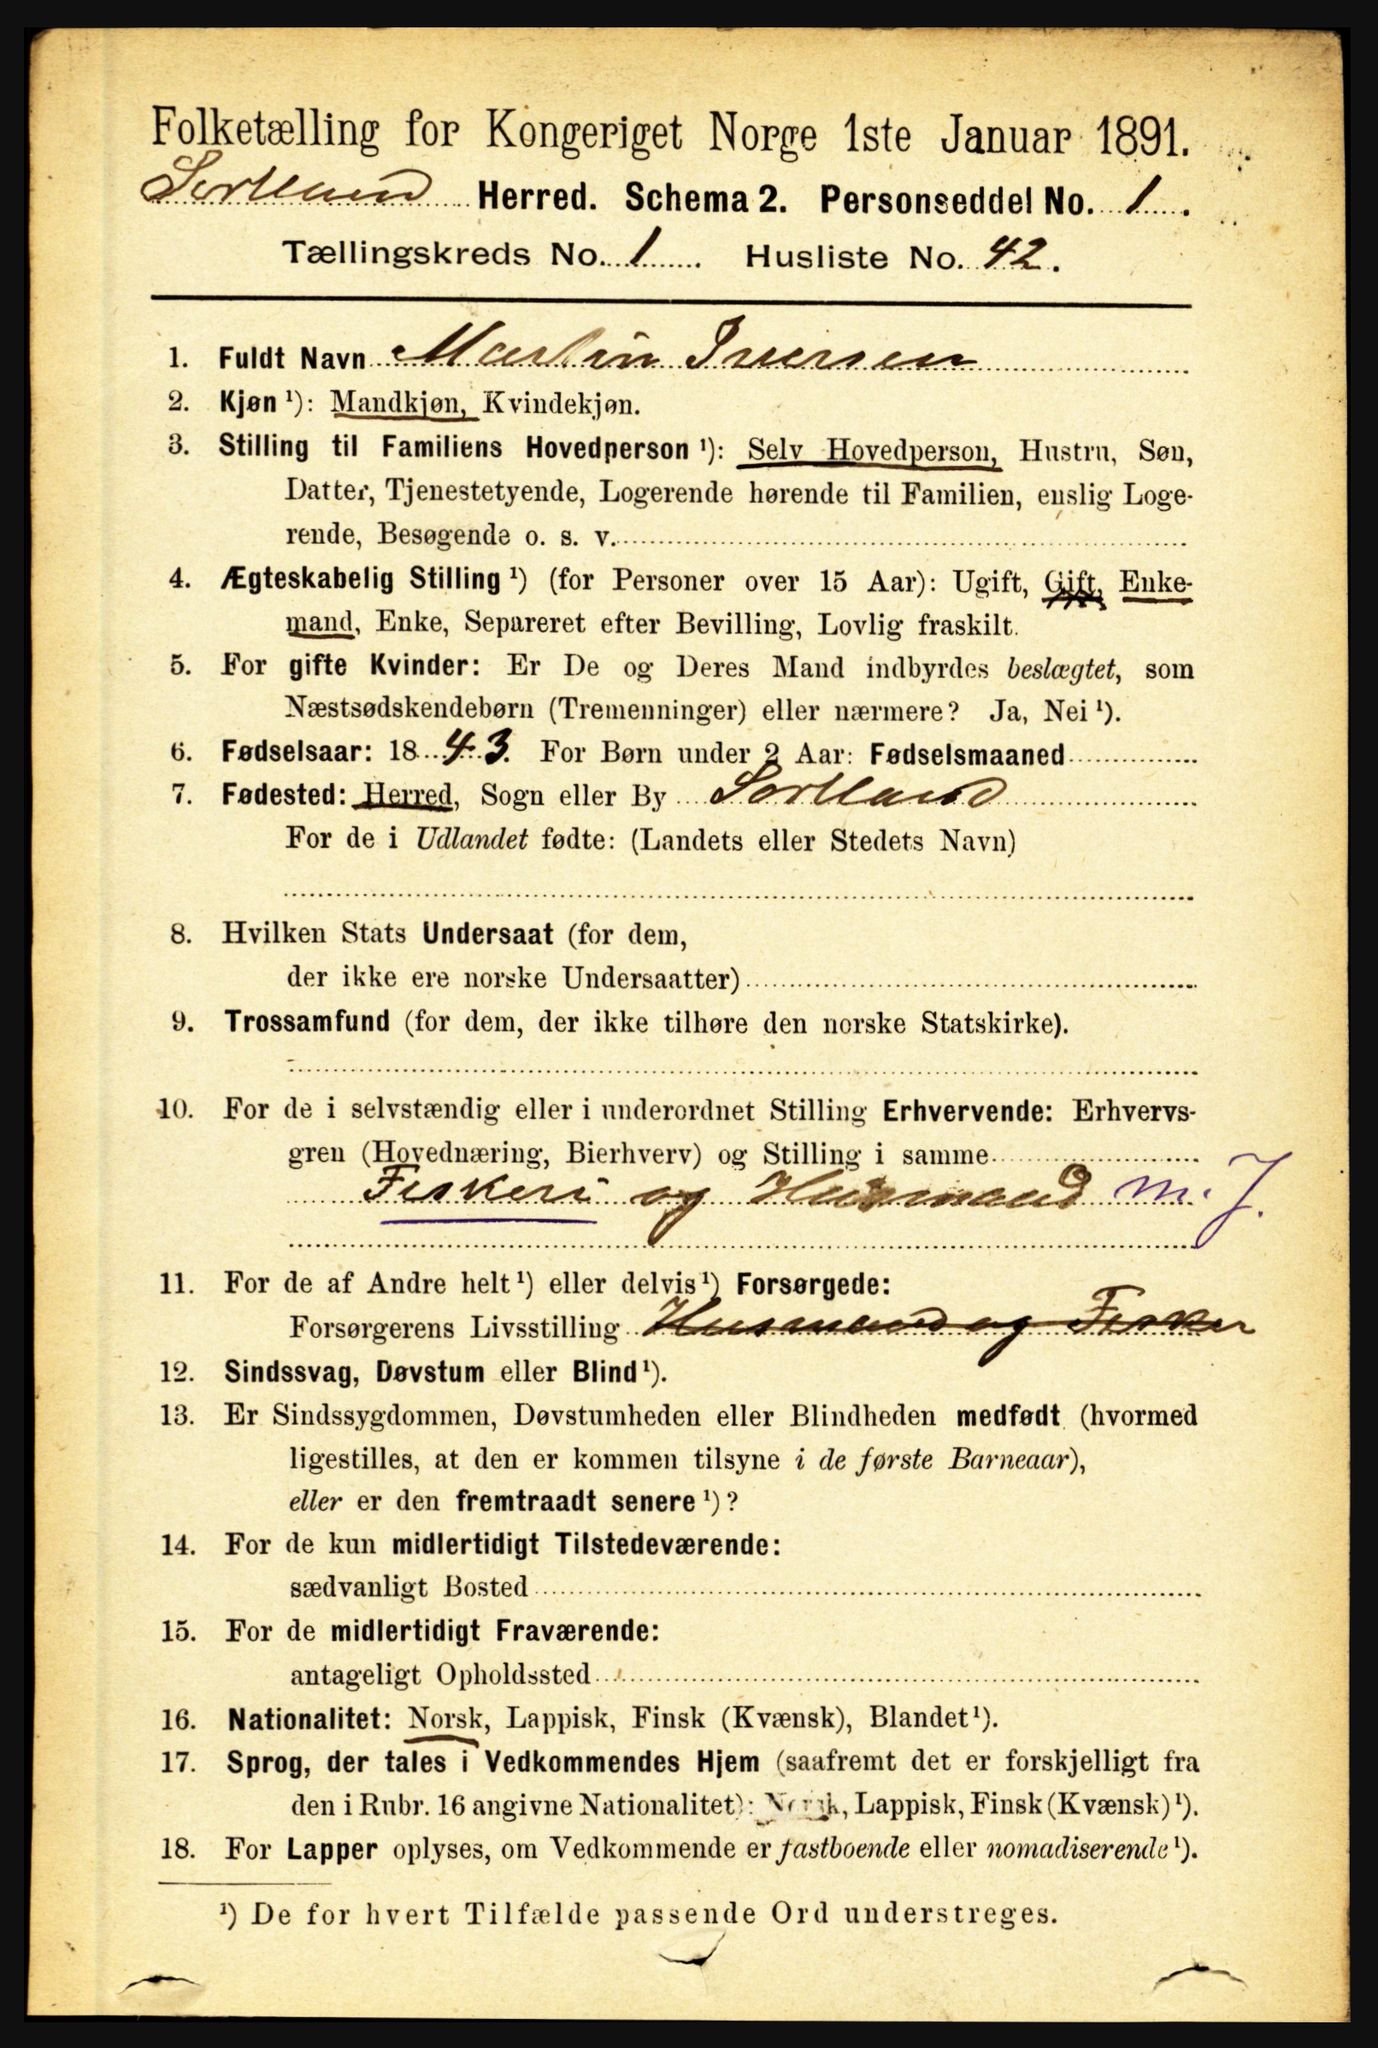 Folketælling for Kongeriget Norge 1ste Januar 1891.
Sortland Herred. Schema 2. Personseddel No. 1.
Tællingskreds No. 1. Husliste No. 42.
1. Fuldt Navn Martin Iversen
2. Kjøn ¹): Mandkjøn, Kvindekjøn.
3. Stilling til Familiens Hovedperson ¹): Selv Hovedperson, Hustru, Søn,
Datter, Tjenestetyende, Logerende hørende til Familien, enslig Loge-
rende, Besøgende o. s. v.
4. Ægteskabelig Stilling ¹) (for Personer over 15 Aar): Ugift, Gift, Enke-
mand, Enke, Separeret efter Bevilling, Lovlig fraskilt.
5. For gifte Kvinder: Er De og Deres Mand indbyrdes beslægtet, som
Næstsødskendebørn (Tremenninger) eller nærmere? Ja, Nei ¹).
6. Fødselsaar: 1843. For Børn under 2 Aar: Fødselsmaaned
7. Fødested: Herred, Sogn eller By Sortland
For de i Udlandet fødte: (Landets eller Stedets Navn)
8. Hvilken Stats Undersaat (for dem,
der ikke ere norske Undersaatter)
9. Trossamfund (for dem, der ikke tilhøre den norske Statskirke).
10. For de i selvstændig eller i underordnet Stilling Erhvervende: Erhvervs-
gren (Hovednæring, Bierhverv) og Stilling i samme
Fiskeri og Husmand m. J.
11. For de af Andre helt ¹) eller delvis ¹) Forsørgede:
Forsørgerens Livsstilling Husmand og Fisker
12. Sindssvag, Døvstum eller Blind ¹).
13. Er Sindssygdommen, Døvstumheden eller Blindheden medfødt (hvormed
ligestilles, at den er kommen tilsyne i de første Barneaar),
eller er den fremtraadt senere ¹)?
14. For de kun midlertidigt Tilstedeværende:
sædvanligt Bosted
15. For de midlertidigt Fraværende:
antageligt Opholdssted
16. Nationalitet: Norsk, Lappisk, Finsk (Kvænsk), Blandet ¹).
17. Sprog, der tales i Vedkommendes Hjem (saafremt det er forskjelligt fra
den i Rubr. 16 angivne Nationalitet): Norsk, Lappisk, Finsk (Kvænsk) ¹).
18. For Lapper oplyses, om Vedkommende er fastboende eller nomadiserende ¹).
¹) De for hvert Tilfælde passende Ord understreges.